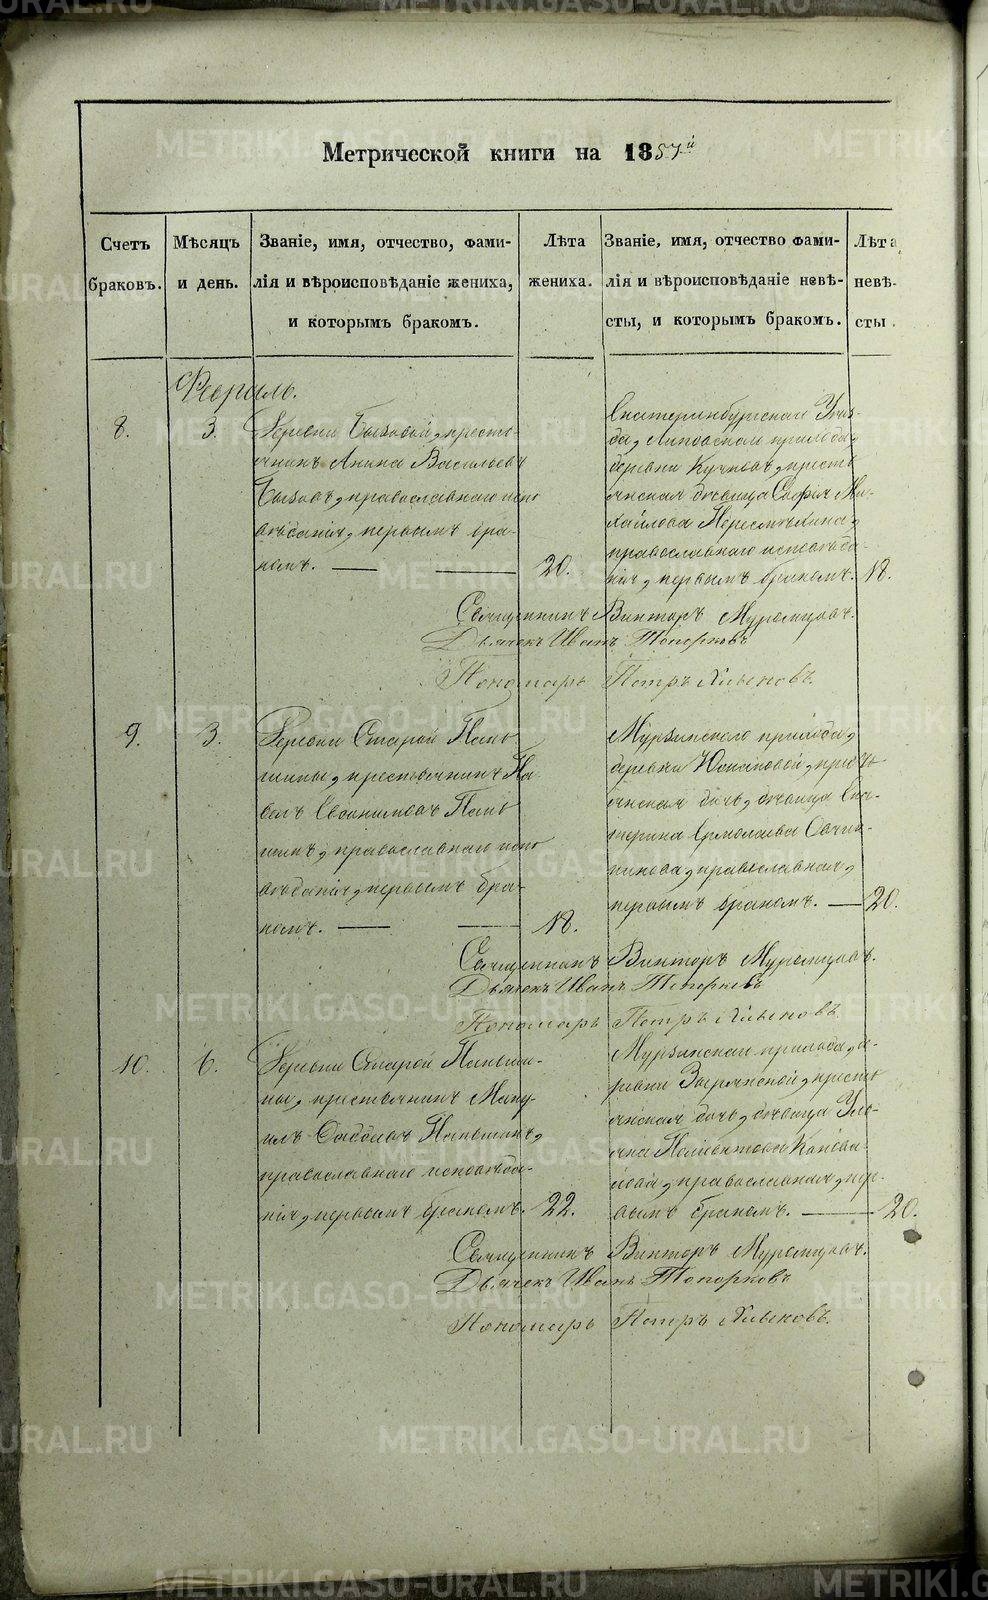 Метрической книги на 1857й
Счетъ браковъ.
Мѣсяцъ и день.
Званіе, имя, отчество, фами-
лія и вѣроисповѣданіе жениха,
и которымъ бракомъ.
Лѣта жениха.
Званіе, имя, отчество фами-
лія и вѣроисповѣданіе невѣ-
сты, и которымъ бракомъ.
Лѣта невѣ-
сты.
Февраль.
8.
3.
Деревни Бызовой, кресть-
янинъ Акила Васильевъ
Бызовъ, православнаго испо
вѣданія, первымъ бра-
комъ.
20.
Екатеринбургскаго Уѣз-
да, Липовскаго прихода,
деревни Кучковъ, кресть
янская дѣвица Софія Ми-
хайлова Пересмѣхина,
православнаго исповѣда-
нія, первымъ бракомъ.
18.
Священникъ Викторъ Муромцовъ.
Дьячекъ Иванъ Топорковъ
Пономарь Петръ Хлыновъ.
9.
3.
Деревни Старой Пань
шины, крестьянинъ Па
велъ Евфимовъ Пань
шинъ, православнаго испо
вѣданія, первымъ бра-
комъ.
18.
Мурзинскаго прихода,
деревни Южаковой, кресть
янская дочь, дѣвица Ека-
терина Ермолаева Овчин-
никова, православная,
первымъ бракомъ.
20.
Священникъ Викторъ Муромцовъ.
Дьячекъ Иванъ Топорковъ
Пономарь Петръ Хлыновъ.
10.
6.
Деревни Старой Паньши-
ны, крестьянинъ Ману-
илъ Савваевъ Паньшинъ,
православнаго исповѣда-
нія, первымъ бракомъ.
22.
Мурзинскаго прихода, де-
ревни Зырянской, кресть
янская дочь, дѣвица Уль-
яна
православная, пер-
вымъ бракомъ.
20.
Священникъ Викторъ Муромцовъ.
Дьячекъ Иванъ Топорковъ
Пономарь Петръ Хлыновъ.
METRIKI.GASO-URAL.RU